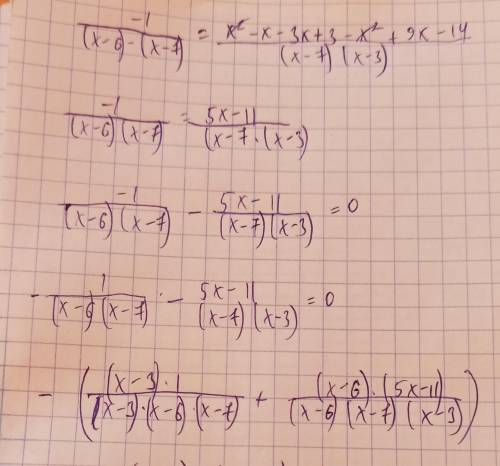 -1/((x-6)-(x-7)) = (x²-x-3x+3-x²+9x-14)/((x-7)(x-3))
-1/((x-6)(x-7)) = (5x-11)/((x-7·(x-3))
-1/((x-6)(x-7)) - (5x-11)/((x-7)(x-3)) = 0
- 1/((x-6)(x-7)) - (5x-11)/((x-7)(x-3)) = 0
- ( ((x-3)·1)/((x-3)·(x-6)·(x-7)) + ((x-6)·(5x-11))/((x-6)(x-7)(x-3)) )